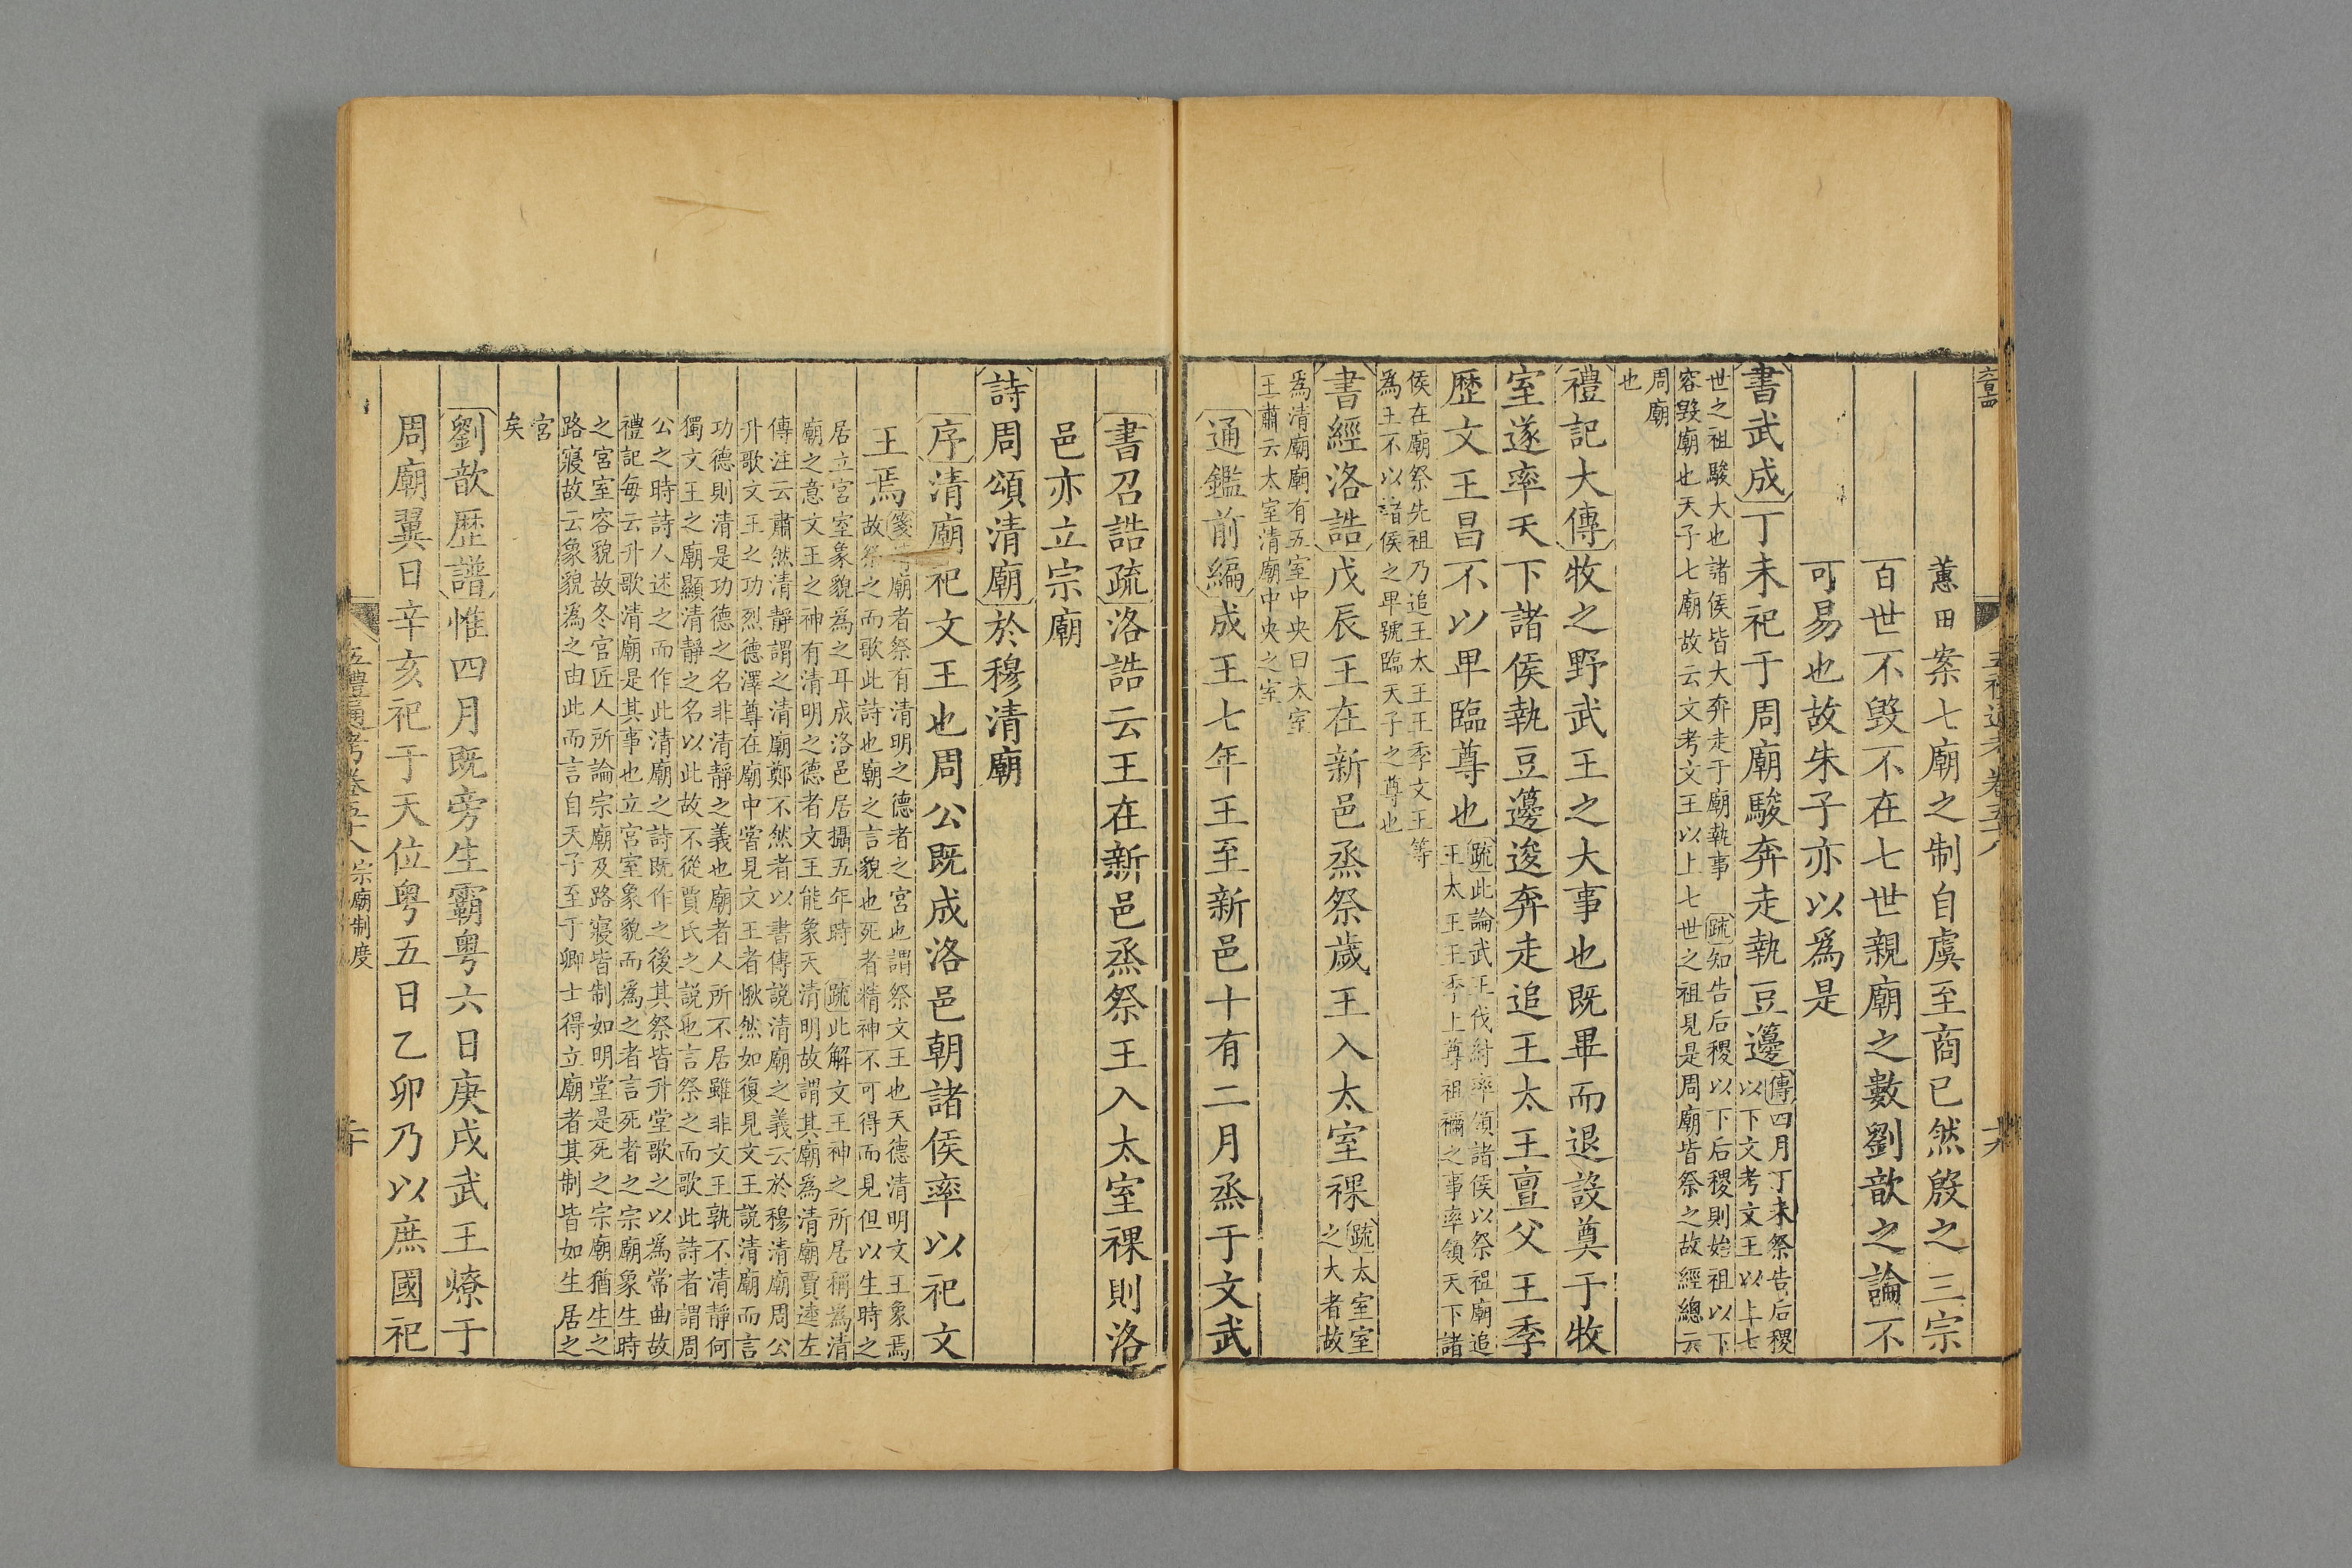 蕙田案七廟之制自虞至商已然殷之三宗
百世不毀不在七世親廟之數劉歆之論不
可易也故朱子亦以爲是
書武成丁未祀于周廟駿奔走執豆籩傳四月丁未祭告后稷
以下文考文王以上七
世之祖駿大也諸侯皆大奔走于廟執事 疏知告后稷以下后稷則始祖以下
容毀廟也天子七廟故云文考文王以上七世之祖見是周廟皆祭之故經總云
周廟
也
禮記大傳牧之野武王之大事也既畢而退設奠于牧
室遂率天下諸侯執豆籩逡奔走追王太王亶父王季
歷文王昌不以卑臨尊也疏此論武王伐紂率領諸侯以祭祖廟追
王太王王季上尊祖禰之事率領天下諸
侯在廟祭先祖乃追王太王王季文王等
爲王不以諸侯之卑號臨天子之尊也
書經洛誥戊辰王在新邑烝祭歲王入太室祼疏太室室
之大者故
爲清廟廟有五室中央曰太室
王肅云太室清廟中央之室
通鑑前編成王七年王至新邑十有二月烝于文武
書召誥疏洛誥云王在新邑烝祭王入太室祼則洛
邑亦立宗廟
詩周頌清廟於穆清廟
序清廟祀文王也周公既成洛邑朝諸侯率以祀文
王焉箋清廟者祭有清明之德者之宮也謂祭文王也天德清明文王象焉
故祭之而歌此詩也廟之言貌也死者精神不可得而見但以生時之
居立宮室象貌爲之耳成洛邑居攝五年時 疏此解文王神之所居稱爲清
廟之意文王之神有清明之德者文王能象天清明故謂其廟爲清廟賈逵左
傳注云肅然清靜謂之清廟鄭不然者以書傳說清廟之義云於穆清廟周公
升歌文王之功烈德澤尊在廟中嘗見文王者愀然如復見文王說清廟而言
功德則清是功德之名非清靜之義也廟者人所不居雖非文王孰不清靜何
獨文王之廟顯清靜之名以此故不從賈氏之說也言祭之而歌此詩者謂周
公之時詩人述之而作此清廟之詩既作之後其祭皆升堂歌之以爲常曲故
禮記每云升歌清廟是其事也立宮室象貌而爲之者言死者之宗廟象生時
之宮室容貌故冬官匠人所論宗廟及路寢皆制如明堂是死之宗廟猶生之
路寢故云象貌爲之由此而言自天子至于卿士得立廟者其制皆如生居之
宮
矣
劉歆歷譜惟四月既旁生霸粤六日庚戌武王燎于
周廟翼日辛亥祀于天位粤五日乙卯乃以庶國祀
五禮通考卷五十八宗廟制度